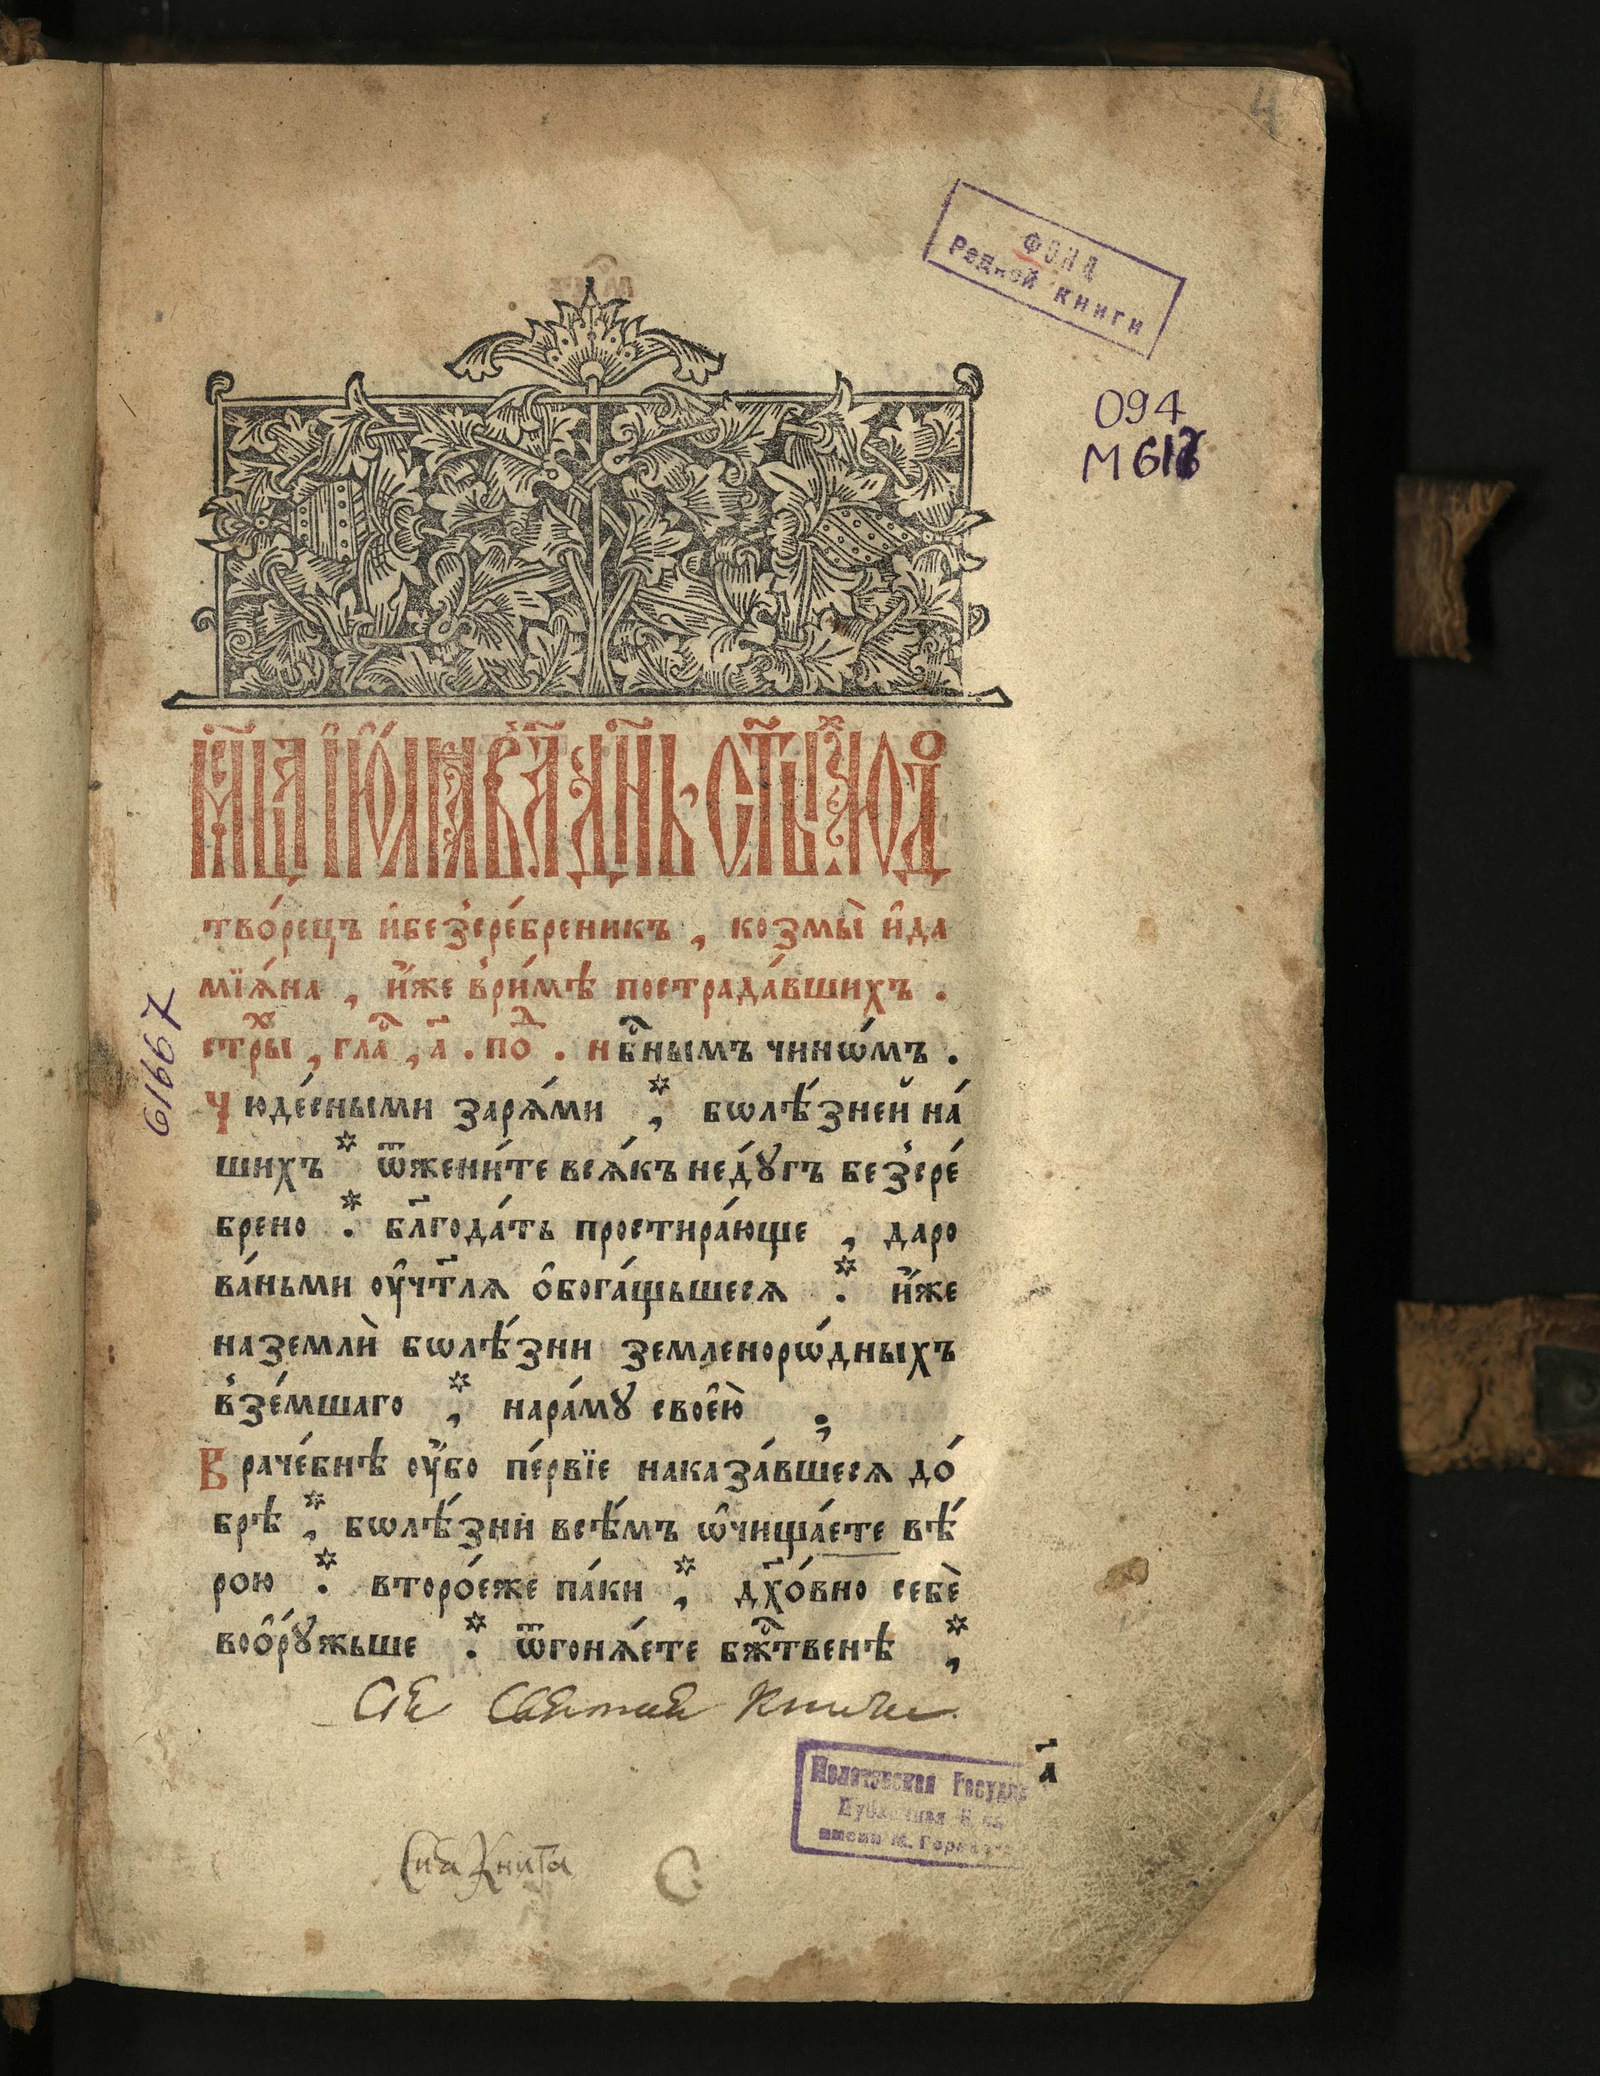 4
ФОНД
Редкой книги
094
М 618
мⷭ҇ца і҆ю́лѧ в҃ а҃ дн҃ь. ст҃ы́хъ чюдо
тво́рецъ и҆безсре́бреникъ , козмы̀ и҆да
мїѧ́на , и҆́же в̾ри́мѣ пострада́вшихъ .
стⷯры , глаⷭ , а҃ . поⷣ . нбⷭ҇нымъ чинѡ́мъ .
61667
Чюде́сными зарѧ́ми * , бѡлѣ́зней на́
шихъ * ѿжени́те всѧ́къ неду́гъ безсре́
брено * . бл҃года́ть простира́юще , даро
ва́ньми ᲂу҆чт҃лѧ ѻ҆бога́щьшесѧ * . и҆́же
наземлѝ бѡлѣ́зни земленорѡ́дныхъ
в̾зе́мшаго * , нара́му свое҆ю̀ ;
Враче́бнѣ ᲂу҆́бо пе́рвїе наказа́вшесѧ до́
брѣ * , бѡлѣ́зни всѣ́мъ ѡ҆чища́ете вѣ́
рою * . второ́еже па́ки * , дх҃о́вно себѐ
воѻ҆ру́жьше * . ѿгонѧ́ете бжⷭ҇твенѣ * ,
Сіѧ Святая Книга
а҃
Государ
имени М. Горького
Сиѧ Книга
С